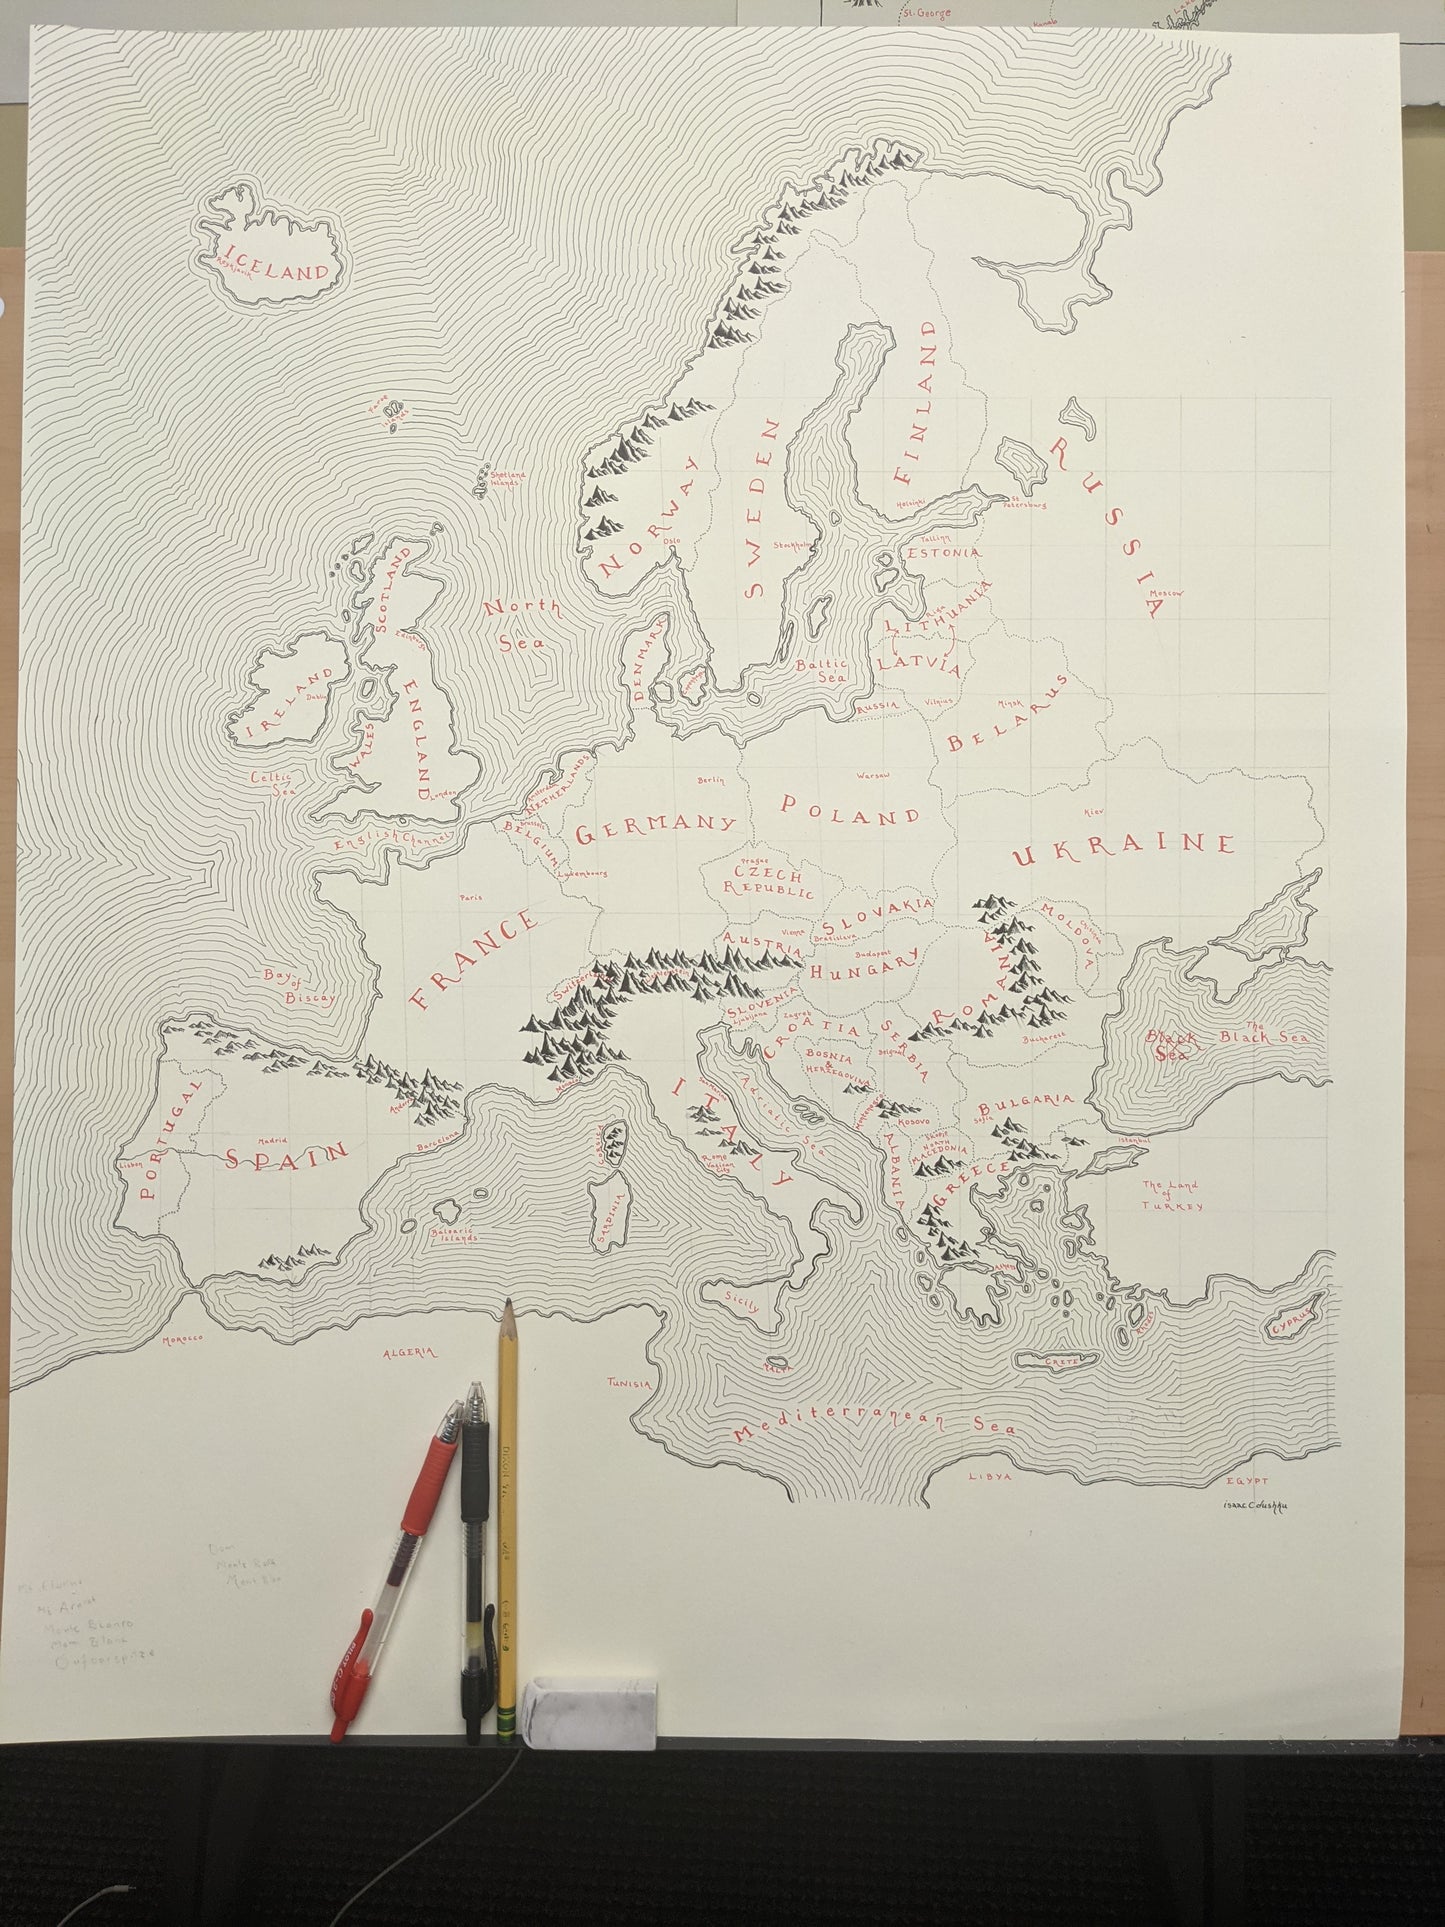 St. George
Kanab
ICELAND
Reykjavik
Faroe
Islands
Shetland
Islands
NORWAY
Oslo
SWEDEN
Stockholm
FINLAND
Helsinki
RUSSIA
St
Petersburg
Moscow
Tallinn
ESTONIA
Riga
LITHUANIA
LATVIA
RUSSIA
Vilnius
Minsk
BELARUS
SCOTLAND
Edinburgh
North
Sea
DENMARK
Baltic
Sea
IRELAND
Dublin
ENGLAND
WALES
London
Celtic
Sea
English Channel
Amsterdam
NETHERLANDS
Brussels
BELGIUM
Luxembourg
Berlin
GERMANY
Warsaw
POLAND
Kiev
UKRAINE
Prague
CZECH
REPUBLIC
SLOVAKIA
Bratislava
Vienna
AUSTRIA
Budapest
HUNGARY
MOLDOVA
ROMANIA
Bucharest
Paris
FRANCE
Switzerland
Bay
of
Biscay
SLOVENIA
Ljubljana
Zagreb
CROATIA
BOSNIA
&
HERZEGOVINA
SERBIA
Belgrade
Montenegro
Kosovo
Black
Sea
The
Black Sea
BULGARIA
Sofia
Skopje
NORTH
MACEDONIA
ALBANIA
GREECE
Athens
Istanbul
The Land
of
TURKEY
Monaco
San Marino
ITALY
Rome
Vatican
City
Adriatic Sea
CORSICA
SARDINIA
Andorra
Barcelona
PORTUGAL
Lisbon
Madrid
SPAIN
Balearic
Islands
Sicily
MALTA
CRETE
Rhodes
CYPRUS
Mediterranean Sea
MOROCCO
ALGERIA
TUNISIA
LIBYA
EGYPT
Dom
Monte Rosa
Mt. Ararat